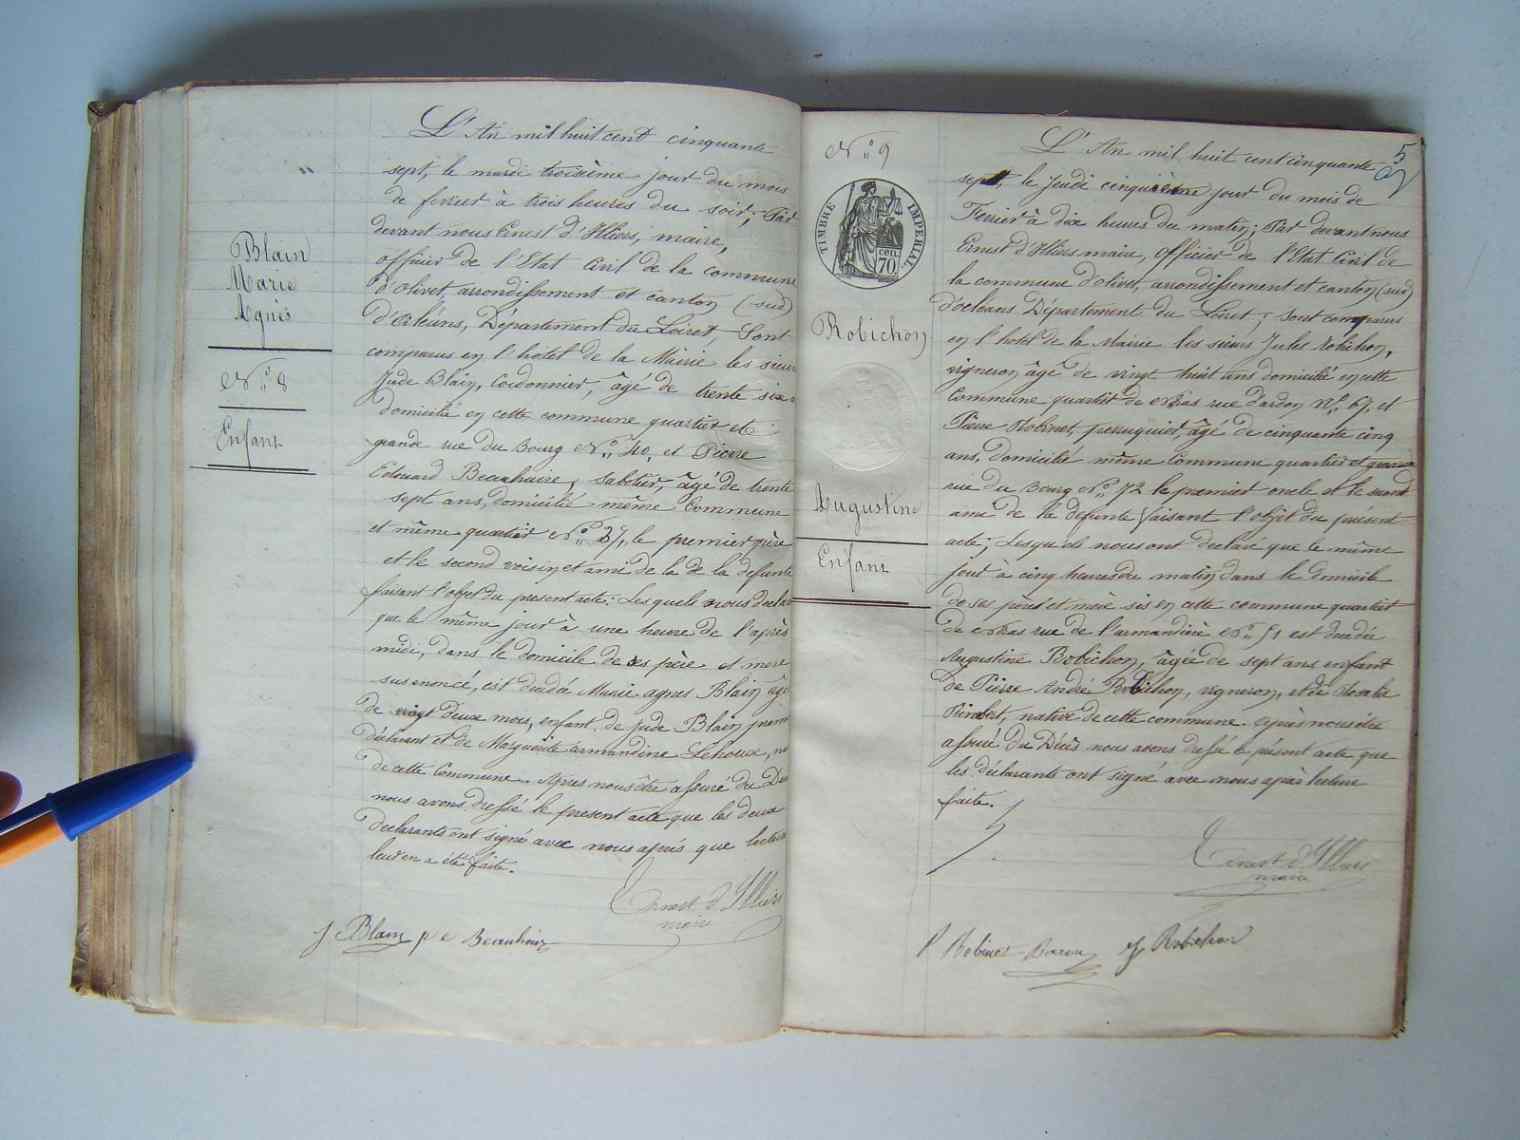 Blain
Marie
Agnès
N.° 8
Enfant
L'An mil huit cent cinquante
sept, le mardi troisième jour du mois
de fevrier à trois heures du soir; Par
devant nous Ernest d'Illiers, maire,
officier de l'Etat Civil de la commune
d'olivet, arrondissement et canton (sud)
d'Orléans, Département du Loiret, Sont
comparus en l'hôtel de la Mairie les sieurs
Jude Blain, Cordonnier, âgé de trente six
domicilié en cette commune quartier et
grande rue du Bourg N.° 40, et Pierre
Edouard Beauhaire, sabotier, âgé de trente
sept ans, domicilié même Commune
et même quartier N.° 27, le premier père
et le second voisin et ami de la de la defunte
faisant l'objet du present acte; Lesquels nous declar
que le même jour à une heure de l'après
midi, dans le domicile de ses père et mere
susenoncé, est décédée Marie agnes Blain âgée
de vingt deux mois, enfant de Jude Blain premier
déclarant et de Marguerite armandine Lehoux, n
de cette Commune. Après nous être assuré du Dé
nous avons dressé le present acte que les deux
declarants ont signé avec nous après que lecture
leur en a été faite.
Ernest d'Illiers
maire
J Blain p e Beauhaire
5
N.° 9
TIMBRE IMPERIAL
70 cen.
Robichon
Augustine
Enfant
L'An mil huit cent cinquante
sept, le jeudi cinquième jour du mois de
Fevrier à dix heures du matin; Par devant nous
Ernest d'Illiers maire, officier de l'Etat Civil de
la commune d'olivet, arrondissement et canton (sud)
d'orleans Département du Loiret; sont comparus
en l'hotel de la Mairie les sieurs Jules Robichon,
vigneron âgé de vingt huit ans domicilié en cette
Commune quartier de rue d'ardon N.° 67, et
Pierre Robinet, perruquier, âgé de cinquante cinq
ans, domicilié même Commune quartier et grande
rue du Bourg N.° 72 le premier oncle et le second
ami de la defunte faisant l'objet du présent
acte; Lesquels nous ont declaré que le même
jour à cinq heures du matin dans le domicile
de ses père et mère sis en cette commune quartier
de rue de l'armandière N.° 51 est décédée
Augustine Robichon, âgée de sept ans enfant
de Pierre André Robichon, vigneron, et de Rosalie
native de cette commune. Après nous être
assuré du Décès nous avons dressé le présent acte que
les déclarants ont signé avec nous après lecture
faite.
Ernest d'Illiers
maire
P Robinet J Robichon